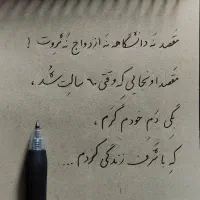 مقصد نه دانشگاهه نه ازدواج نه ثروت !
مقصد اونجایی که وقتی ۶۰ سالت شد ،
بگی دَم خودم گرم ،
که با شَرَف زندگی کردم ....